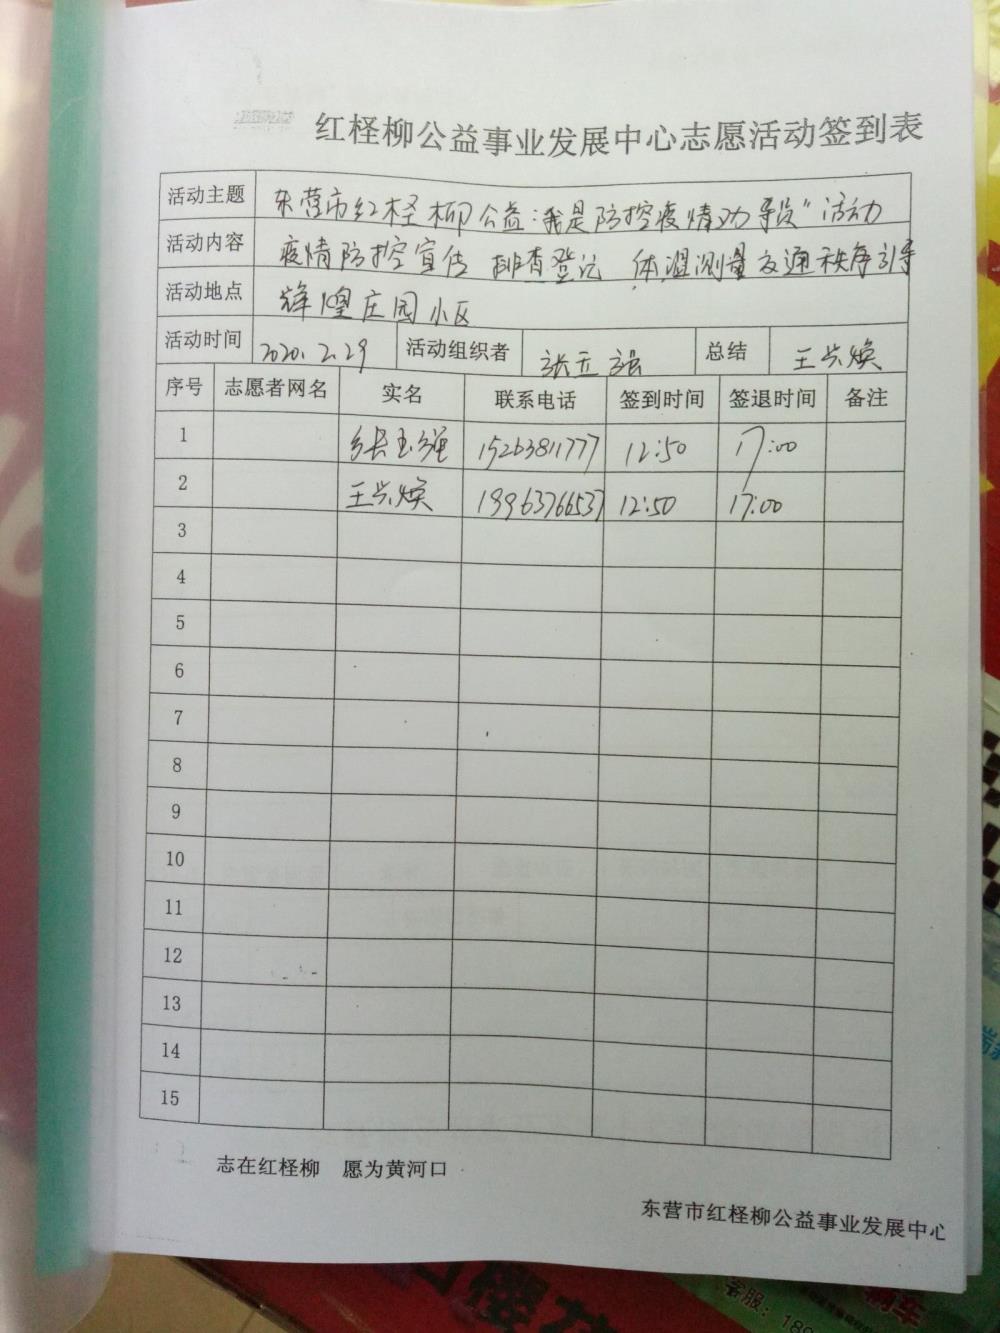 红柽柳公益事业发展中心志愿活动签到表
活动主题 东营市红柽柳公益:我是防控疫情劝导员"活动
活动内容 疫情防控宣传 排查登记 体温测量 交通秩序引导
活动地点 辉煌庄园小区
活动时间 2020.2.29 活动组织者 张玉强 总结 王兴焕
序号 志愿者网名 实名 联系电话 签到时间 签退时间 备注
1 张玉强 15263811777 12:50 17:00
2 王兴焕 19963766537 12:50 17:00
3
4
5
6
7
8
9
10
11
12
13
14
15
志在红柽柳 愿为黄河口
东营市红柽柳公益事业发展中心
樱花
客服:189